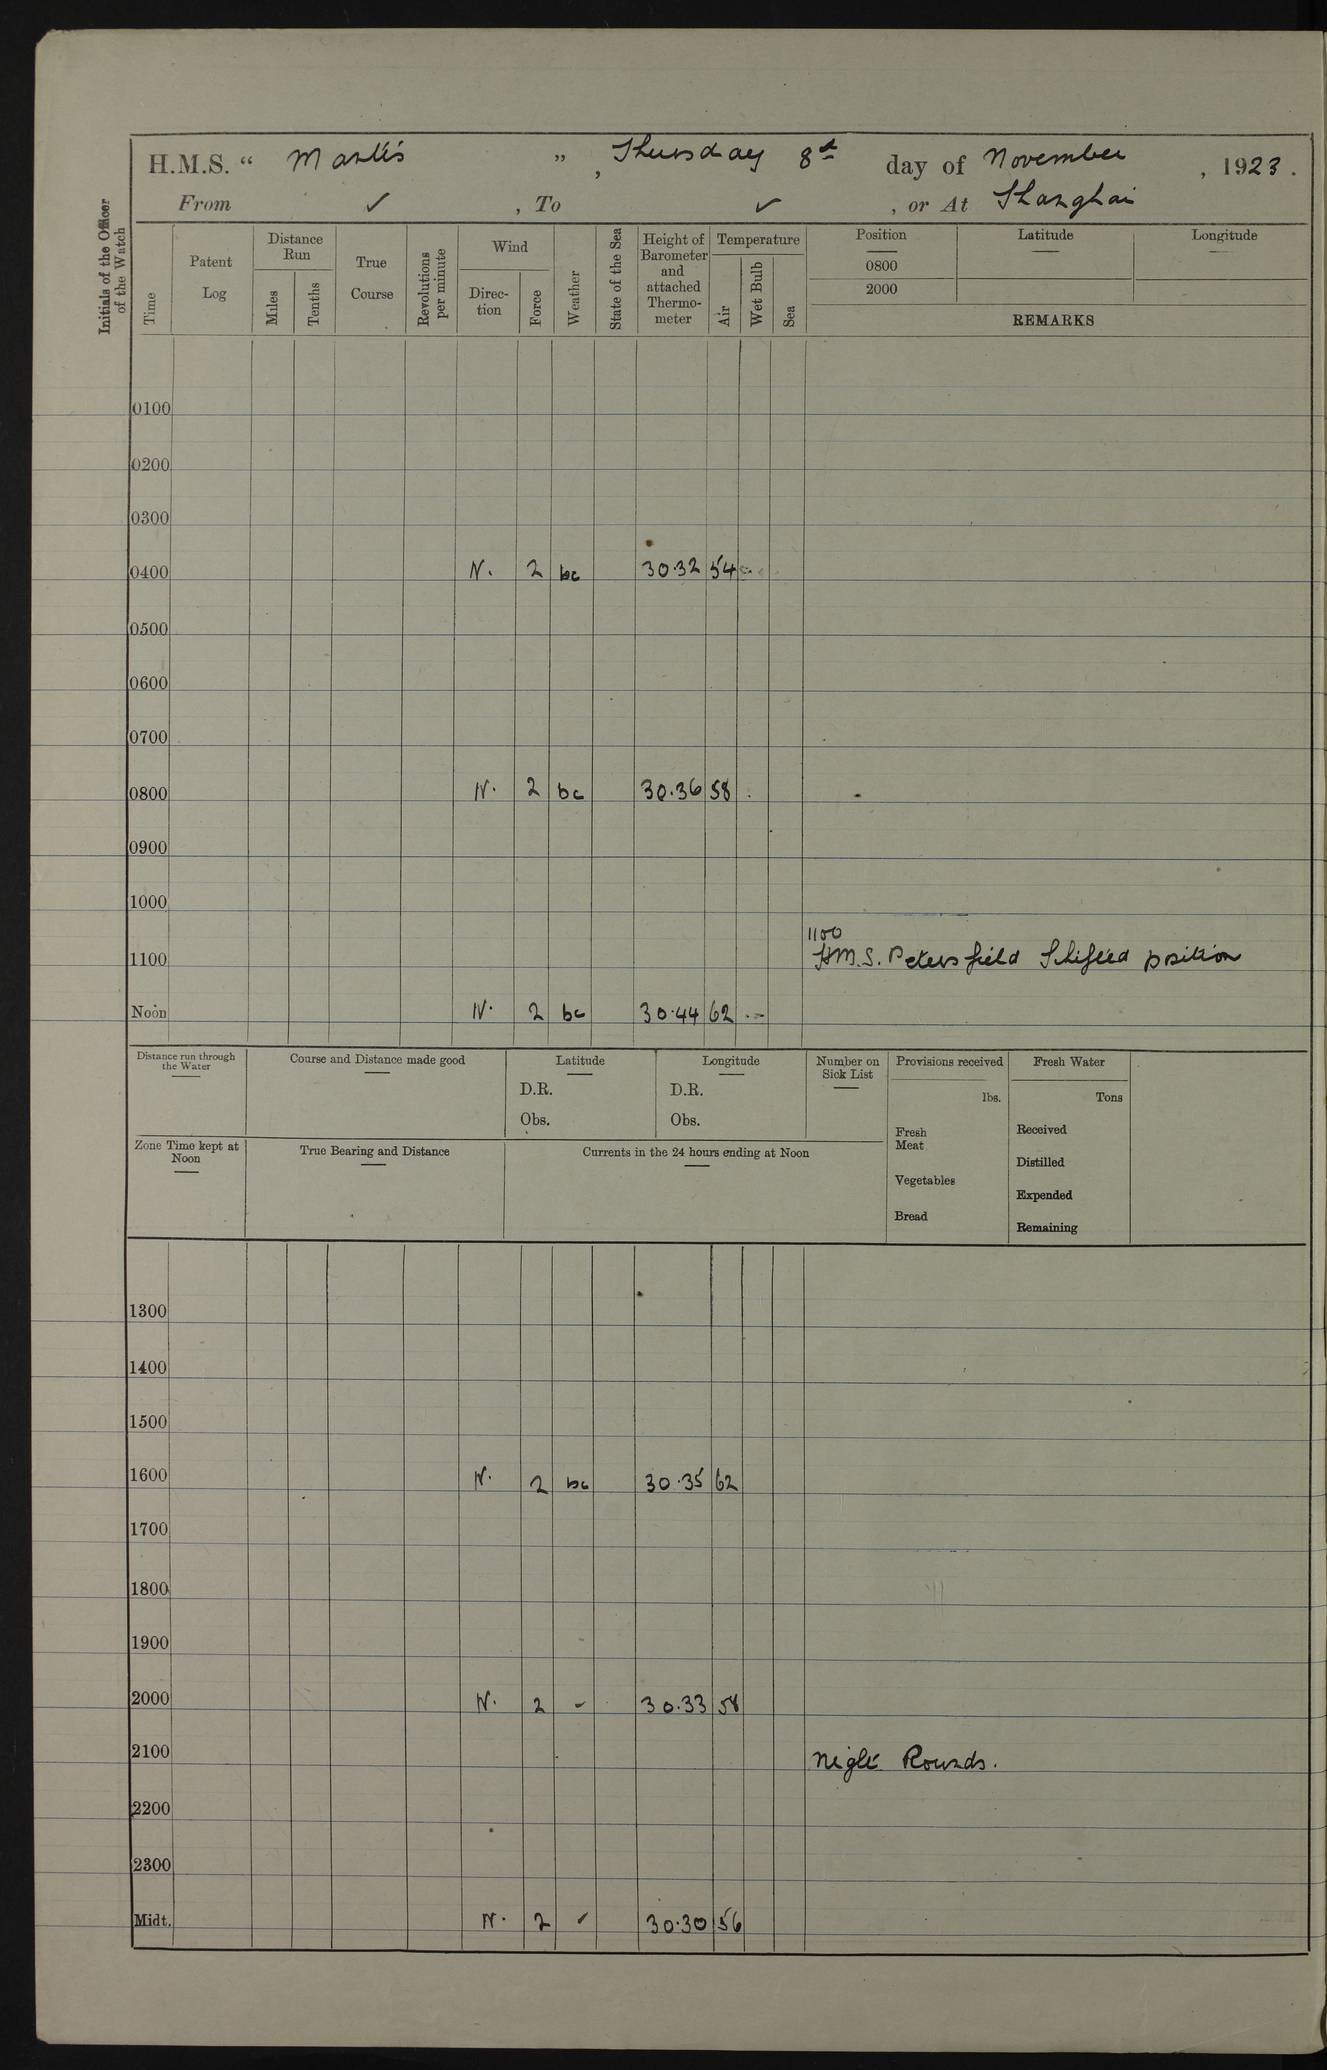 H.M.S. “ Mantis ”, Thursday 8th day of November, 1923.
From ✓, To ✓, or At Shanghai
Initials of the Officer of the Watch
Time
Patent Log
Distance Run
Miles
Tenths
True Course
Revolutions per minute
Wind
Direc-tion
Force
Weather
State of the Sea
Height of Barometer and attached Thermo-meter
Temperature
Air
Wet Bulb
Sea
Position
Latitude
Longitude
0800
2000
REMARKS
0100
0200
0300
0400 N. 2 bc 30.32 54
0500
0600
0700
0800 N. 2 bc 30.36 58
0900
1000
1100
1100 H.M.S. Petersfield Shifted position
Noon N. 2 bc 30.44 62
Distance run through the Water
Course and Distance made good
Latitude
D.R.
Obs.
Longitude
D.R.
Obs.
Number on Sick List
Provisions received
lbs.
Fresh Meat
Vegetables
Bread
Fresh Water
Tons
Received
Distilled
Expended
Remaining
Zone Time kept at Noon
True Bearing and Distance
Currents in the 24 hours ending at Noon
1300
1400
1500
1600 N. 2 bc 30.35 62
1700
1800
1900
2000 N. 2 - 30.33 58
2100 Night Rounds.
2200
2300
Midt. N. 2 ✓ 30.30 56